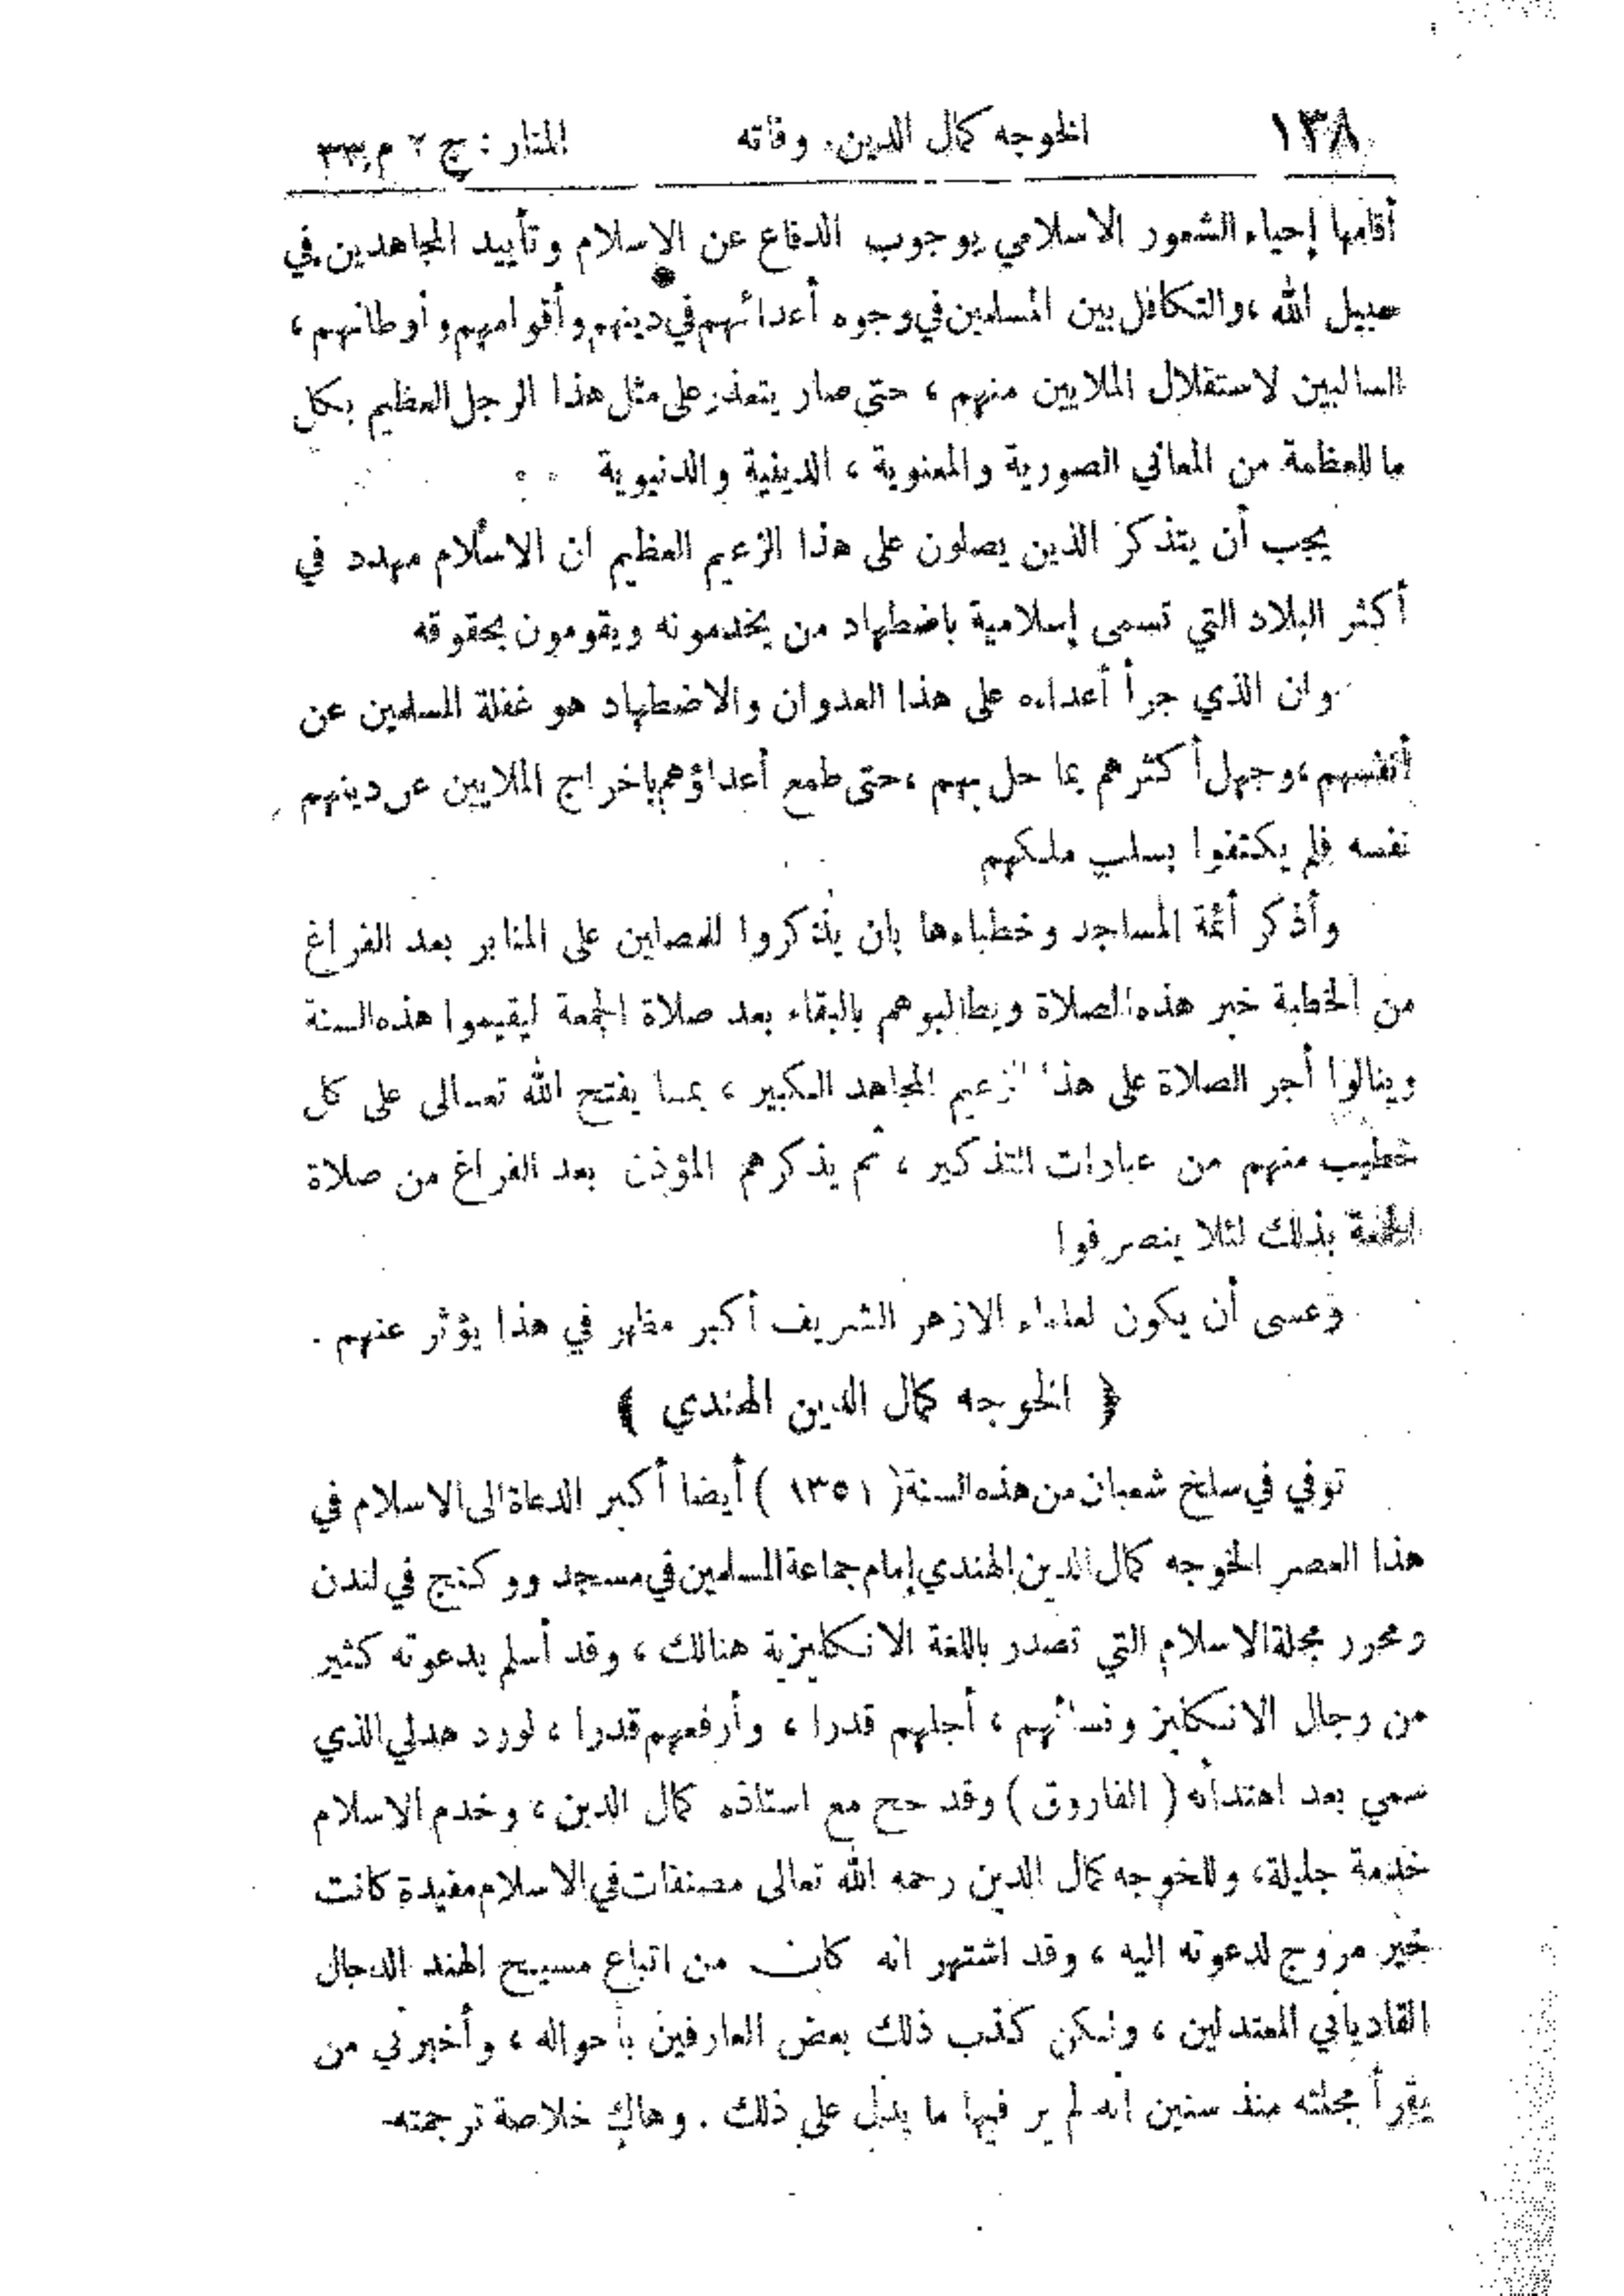 ١٣٨ الخوجه كمال الدين. وفاته المنار : ج ٢ م ٣٣
أقامها إحياء الشعور الاسلامي بوجوب الدفاع عن الإسلام وتأييد المجاهدين في
سبيل الله ، والتكافل بين المسلمين في وجوه أعدائهم في دينهم وأقوامهم وأوطانهم ،
السالبين لاستقلال الملايين منهم ، حتى صار يتعذر على مثل هذا الرجل العظيم بكل
ما للعظمة من المعاني الصورية والمعنوية ، الدينية والدنيوية . .
يجب أن يتذكر الذين يصلون على هذا الزعيم العظيم ان الاسلام مهدد في
أكثر البلاد التي تسمى إسلامية باضطهاد من يخدمونه ويقومون بحقوقه
وان الذي جرأ أعداءه على هذا العدوان والاضطهاد هو غفلة المسلمين عن
أنفسهم ، وجهل أكثرهم بما حل بهم ، حتى طمع أعداؤهم باخراج الملايين عن دينهم
نفسه فلم يكتفوا بسلب ملكهم
وأذكر أئمة المساجد وخطباءها بان يذكروا للمصلين على المنابر بعد الفراغ
من الخطبة خبر هذه الصلاة ويطالبوهم بالبقاء بعد صلاة الجمعة ليقيموا هذه السنة
وينالوا أجر الصلاة على هذا الزعيم المجاهد الكبير ، بما يفتح الله تعالى على كل
خطيب منهم من عبارات التذكير ، ثم يذكرهم المؤذن بعد الفراغ من صلاة
الجمعة بذلك لئلا ينصرفوا
وعسى أن يكون لعلماء الازهر الشريف أكبر مظهر في هذا يؤثر عنهم .
﴿ الخوجه كمال الدين الهندي ﴾
توفي في سلخ شعبان من هذه السنة ( ١٣٥١ ) أيضا أكبر الدعاة الى الاسلام في
هذا العصر الخوجه كمال الدين الهندي إمام جماعة المسلمين في مسجد ووكنج في لندن
ومحرر مجلة الاسلام التي تصدر باللغة الانكليزية هنالك ، وقد أسلم بدعوته كثير
من رجال الانكليز ونسائهم ، أجلهم قدرا ، وأرفعهم قدرا ، لورد هدلي الذي
سمي بعد اهتدائه ( الفاروق ) وقد حج مع استاذه كمال الدين ، وخدم الاسلام
خدمة جليلة ، وللخوجه كمال الدين رحمه الله تعالى مصنفات في الاسلام مفيدة كانت
خير مروج لدعوته اليه ، وقد اشتهر انه كان من اتباع مسيح الهند الدجال
القادياني المعتدلين ، ولكن كذب ذلك بعض العارفين بأحواله ، وأخبرني من
يقرأ مجلته منذ سنين انه لم ير فيها ما يدل على ذلك . وهاك خلاصة ترجمته